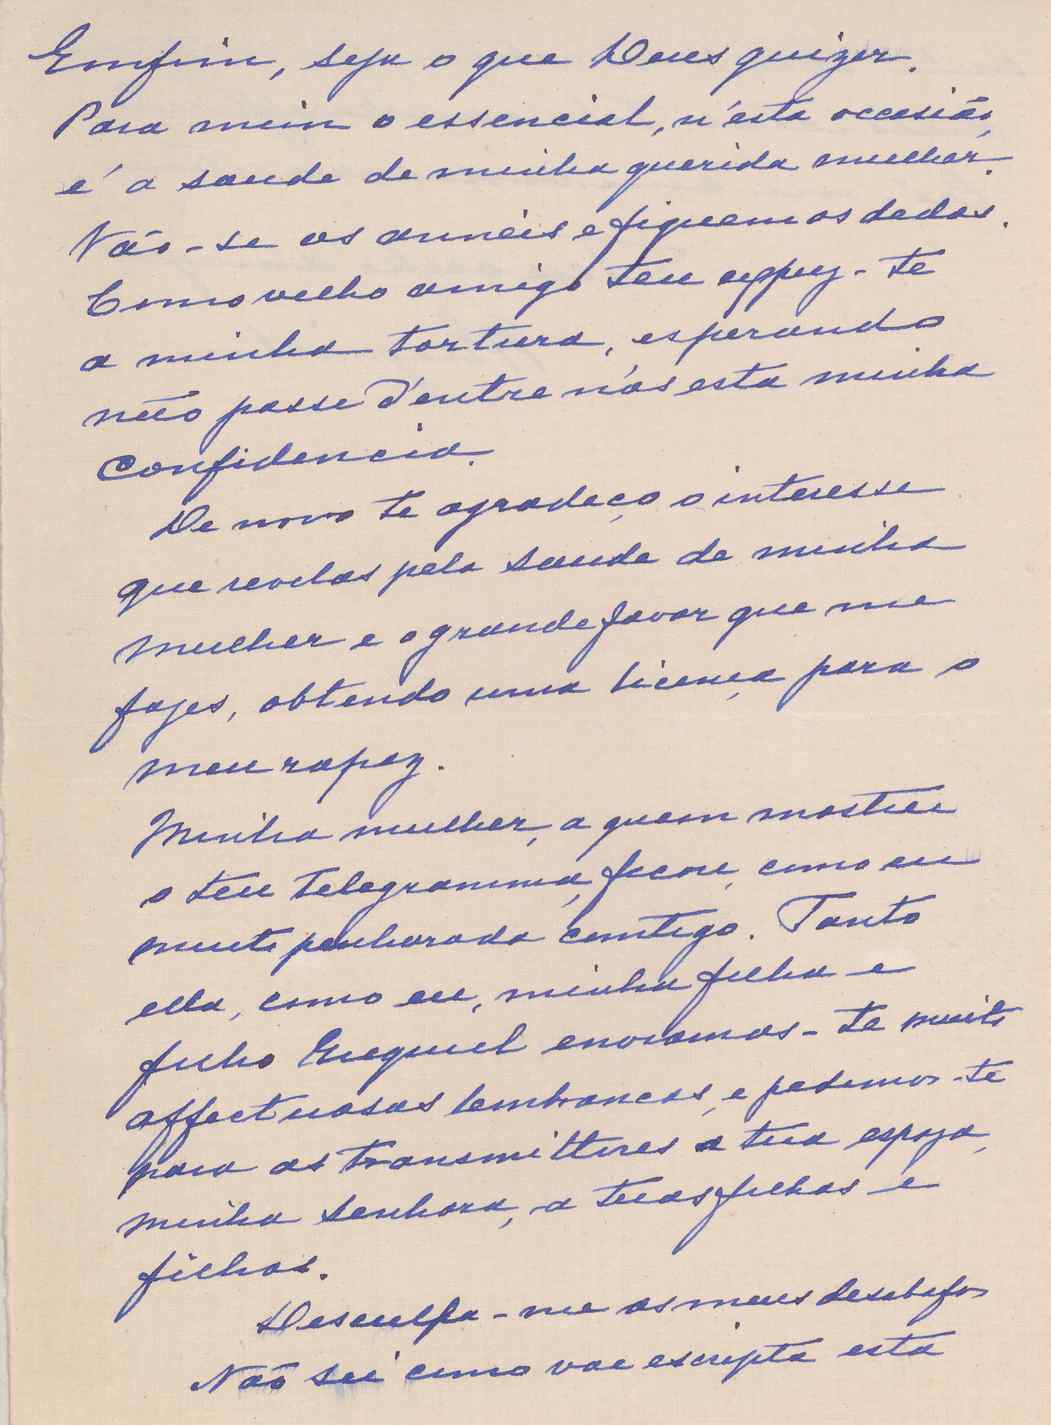 Emfim, seja o que Deus quizer.
Para mim o essencial, n'esta occasião,
é a saude de minha querida mulher.
Vão-se os anneis e fiquem os dedos.
Como velho amigo teu expuz-te
a minha tortura, esperando
não passe d'entre nós esta minha
confidencia.
De novo te agradeço o interesse
que revelas pela saude de minha
mulher e o grande favor que me
fazes, obtendo uma licença para o
meu rapaz.
Minha mulher, a quem mostrei
o teu telegramma, ficou, como eu
muito penhorada comtigo. Tanto
ella, como eu, minha filha e
filho Ezequiel enviamos-te muito
affectuosas lembranças, e pedimos-te
para as transmittires a tua esposa,
minha Senhora, a tuas filhas e
filhos.
Desculpa-me os meus desabafos
Não sei como vae escripta esta